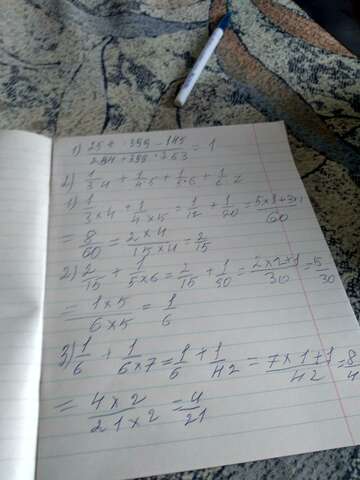 1) 254 · 399 - 145 / 254 + 399 · 253 = 1
2) 1/3·4 + 1/4·5 + 1/5·6 + 1/6·7
1) 1/3×4 + 1/4×5 = 1/12 + 1/20 = 5×1+3×1/60
= 8/60 = 2×4/15×4 = 2/15
2) 2/15 + 1/5×6 = 2/15 + 1/30 = 2×2+1/30 = 5/30
= 1×5/6×5 = 1/6
3) 1/6 + 1/6×7 = 1/6 + 1/42 = 7×1+1/42 = 8/4
= 4×2/21×2 = 4/21